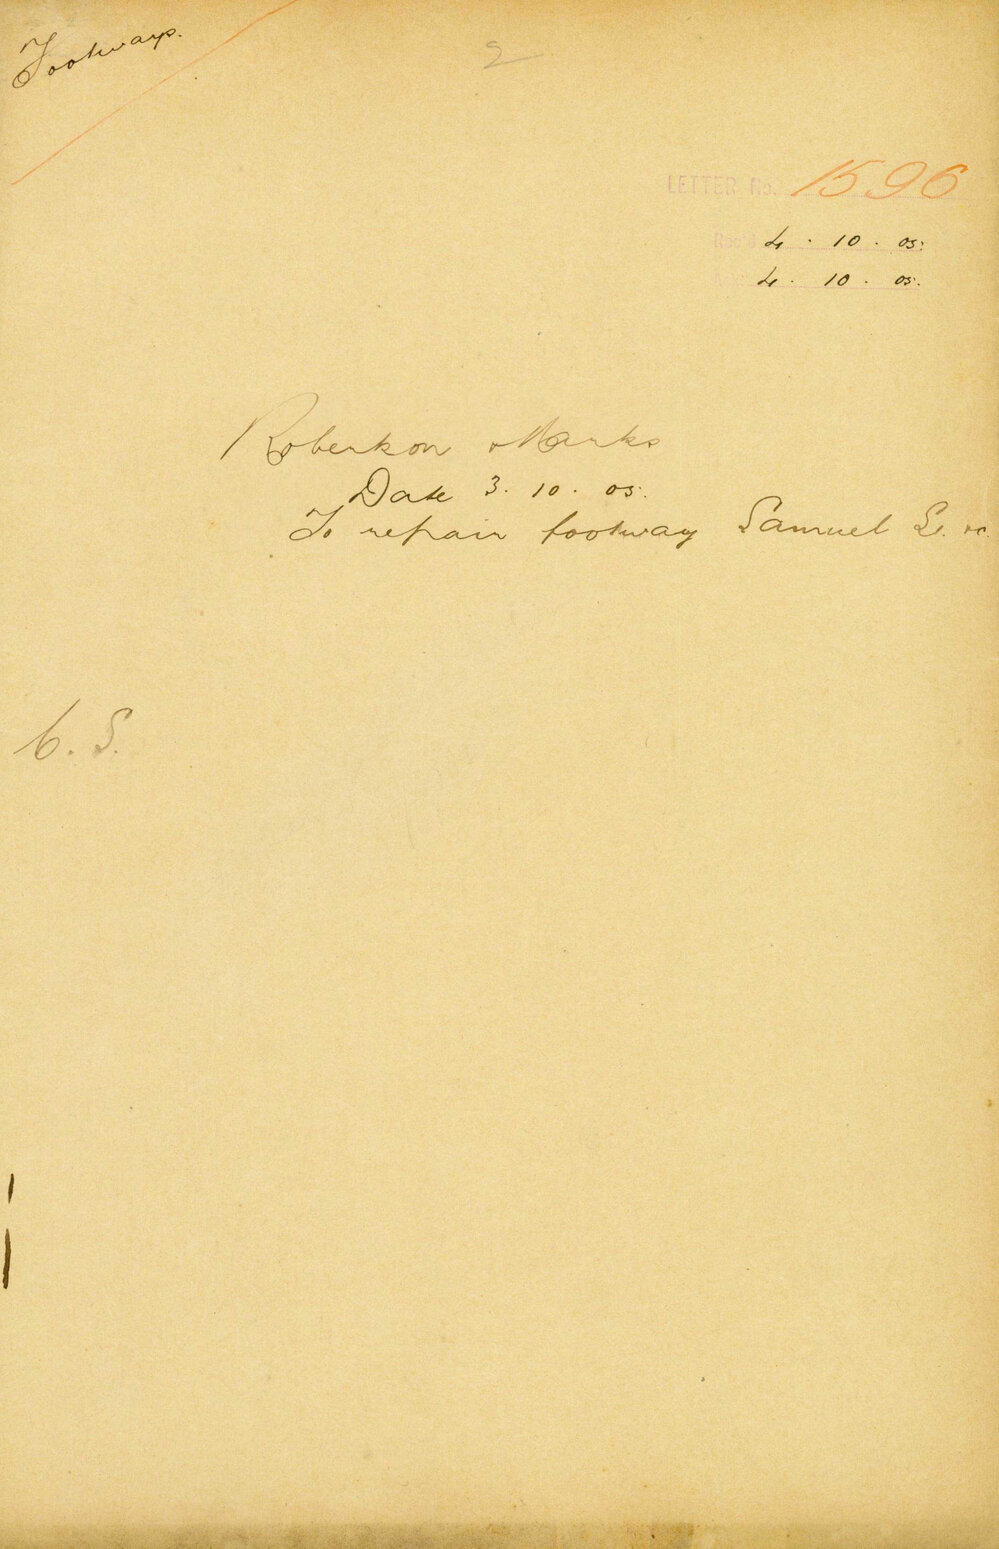 Footways.
2
LETTER No. 1596
Rec'd 4 . 10 . 05.
4 . 10 . 05.
Robertson & Marks
Date 3. 10. 05.
To repair footway Samuel St. &c.
C. S.